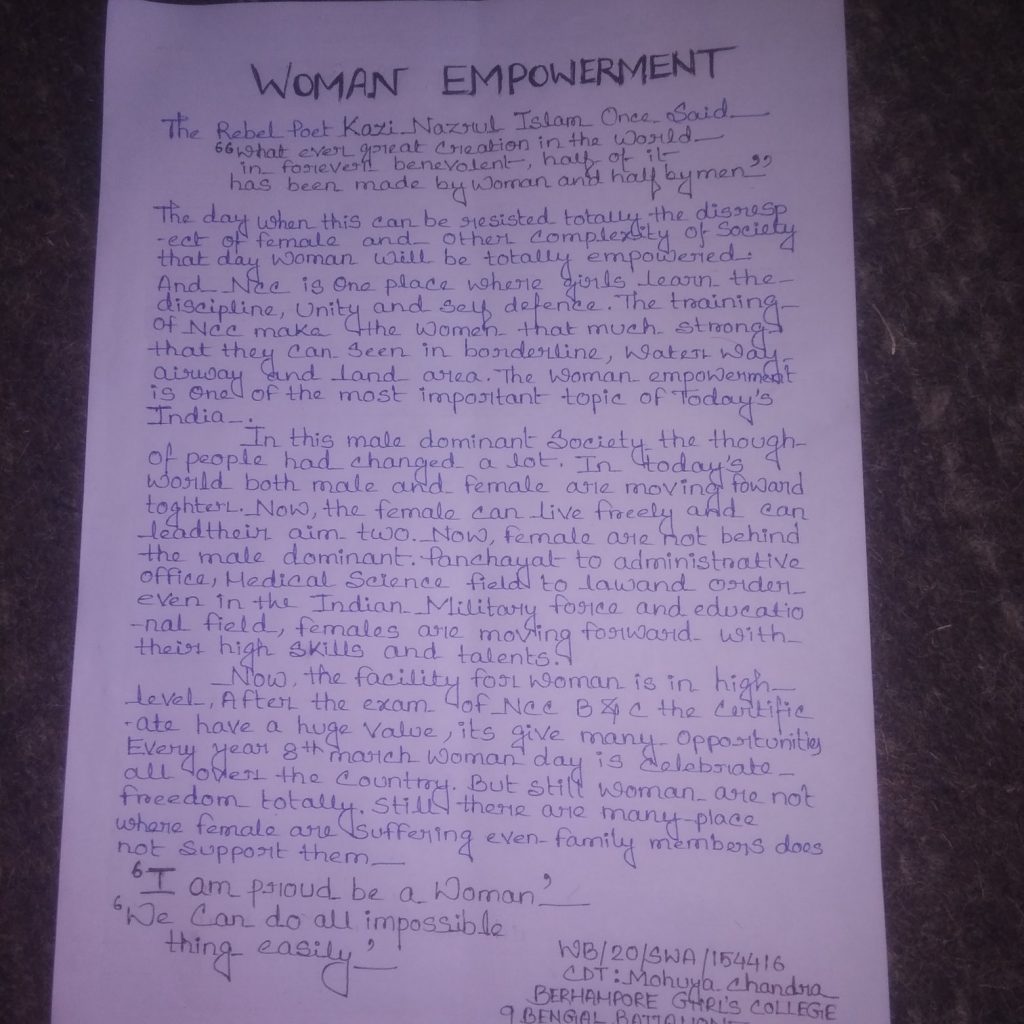 WOMAN EMPOWERMENT
The Rebel Poet Kazi Nazrul Islam Once Said
"What ever great creation in the World
in forevert benevolent, half of it
has been made by Woman and half by men"
The day when this can be resisted totally the disresp
-ect of female and other complexity of Society
that day Woman Will be totally empowered.
And Ncc is One place where girls learn the
discipline, Unity and Self defence. The training
of Ncc make the Women that much strong
that they can Seen in borderline, Water Way
airway and Land area. The Woman empowerment
is One of the most important topic of Today's
India.
In this male dominant Society the though
of people had changed a lot. In today's
World both male and female are moving foward
toghter. Now, the female can live freely and can
leadtheir aim two. Now, female are not behind
the male dominant. Panchayat to administrative
office, Medical Science field to lawand order
even in the Indian Military force and educatio
-nal field, females are moving forward with
their high skills and talents.
Now, the facility for Woman is in high
level, After the exam of Ncc B & C the Certific
-ate have a huge Value, its give many Opportunities
Every year 8th march Woman day is Celebrate
all over the Country. But Still Woman are not
freedom totally. Still there are many place
where female are Suffering even family members does
not Support them
'I am proud be a Woman'
'We Can do all impossible
thing easily'
WB/20/SWA/154416
CDT: Mohuya Chandra
BERHAMPORE GIRL'S COLLEGE
9 BENGAL BATTALION